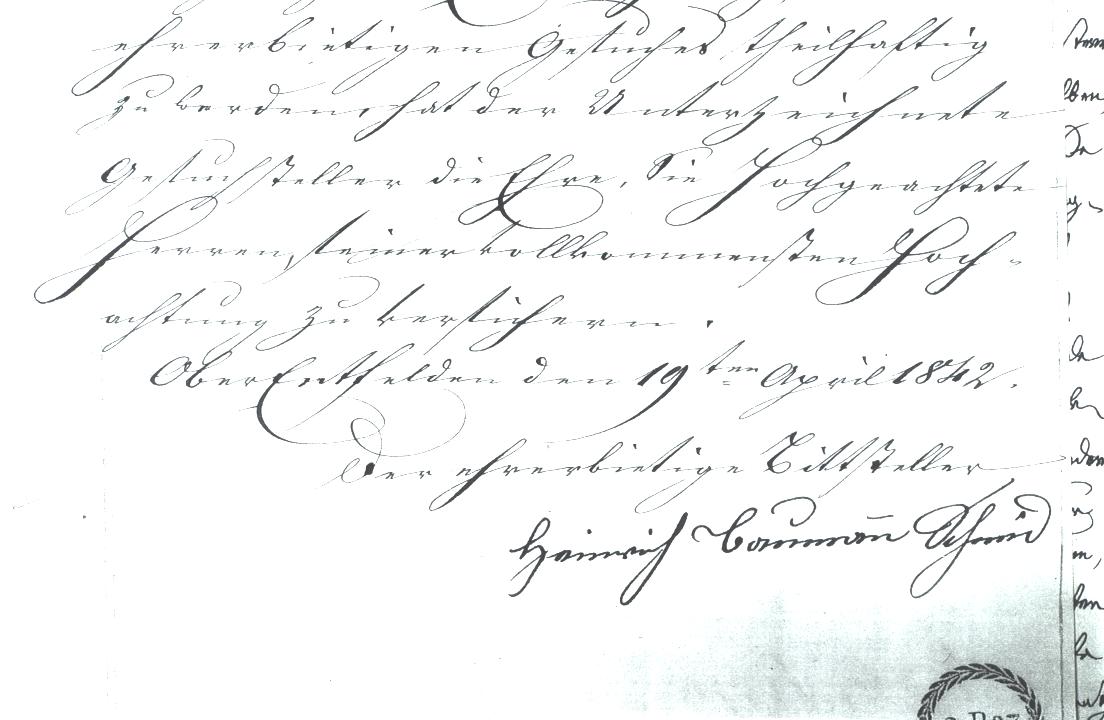 ehrerbietigen Gesuches theilhaftig
zu werden, hat der Unterzeichnete
Gesuchsteller die Ehre, Sie Hochgeachtete
Herren, seiner vollkommensten Hoch-
achtung zu versichern.
OberEntfelden den 19ten April 1842.
Der ehrerbietige Bittsteller
Heinrich Baumann Schmid